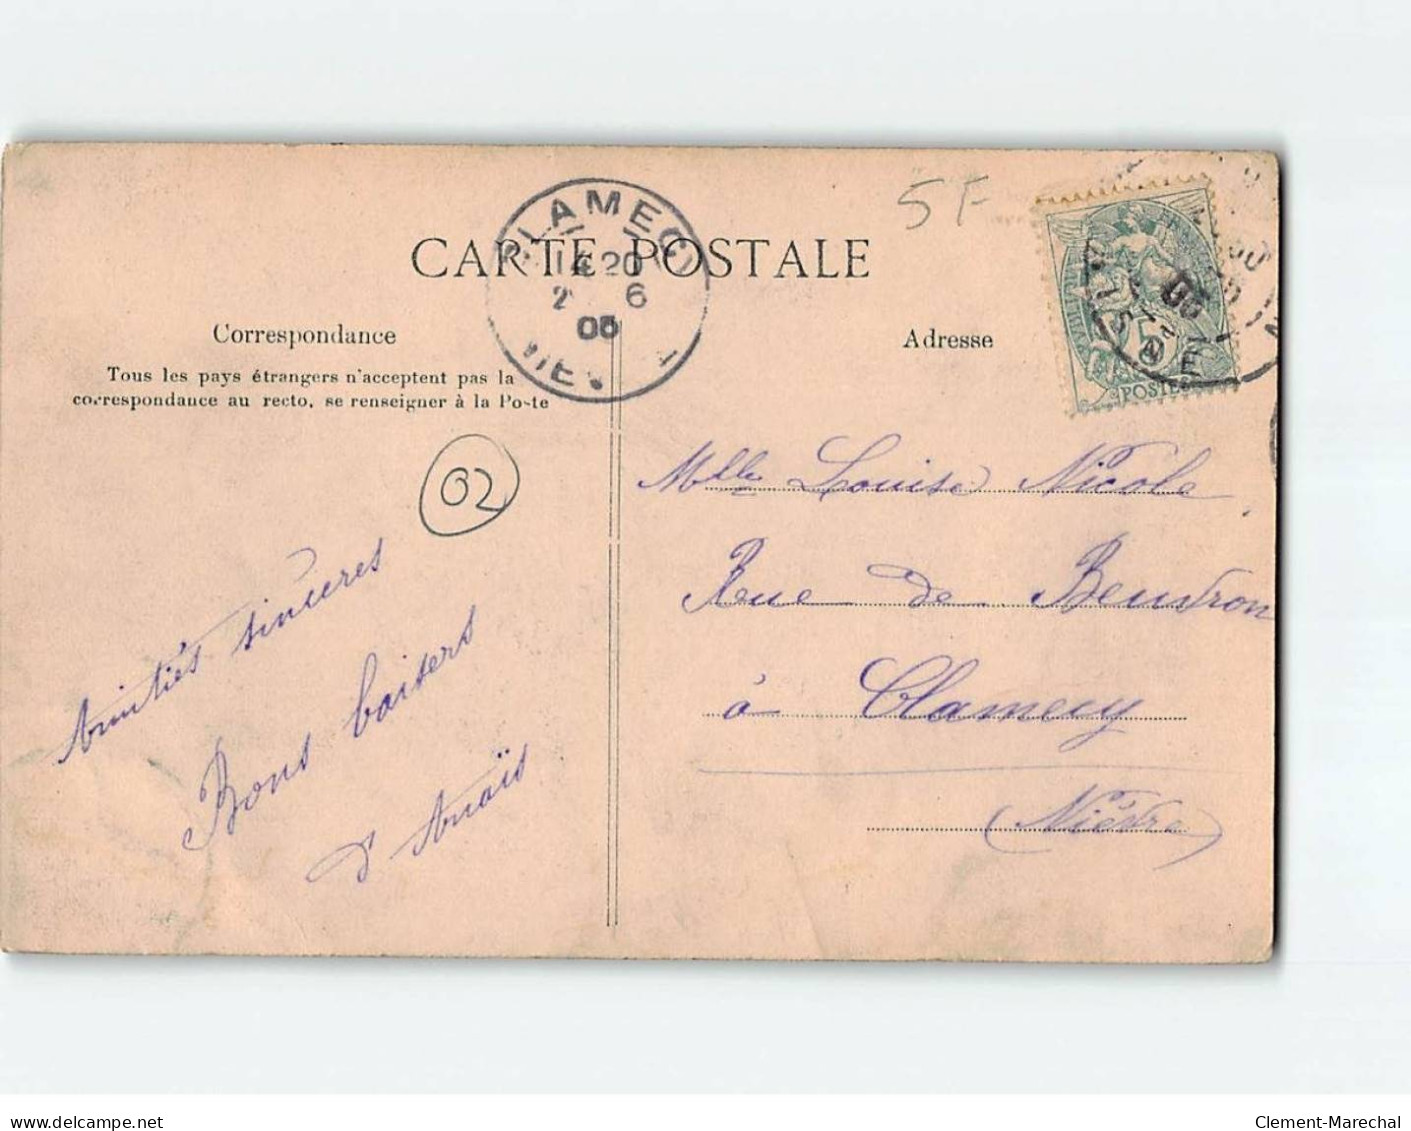 5F
CLAMECY
14 20
2 6
05
CARTE POSTALE
Correspondance
Adresse
Tous les pays étrangers n'acceptent pas la
correspondance au recto, se renseigner à la Poste
5
POSTES
02
Mlle Louise Nicole
Rue de Beuvron
à Clamecy
(Nièvre)
Amitiés sincères
Bons baisers
d'Anaïs
www.delcampe.net
Clement-Marechal